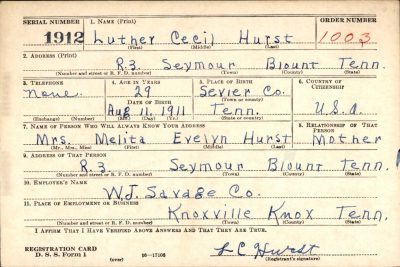 SERIAL NUMBER 1. NAME (Print) ORDER NUMBER
1912 Luther Cecil Hurst 1003
(First) (Middle) (Last)
2. ADDRESS (Print)
R.3. Seymour Blount Tenn.
(Number and street or R. F. D. number) (Town) (County) (State)
3. TELEPHONE 4. AGE IN YEARS 5. PLACE OF BIRTH 6. COUNTRY OF CITIZENSHIP
None. 29 Sevier Co.
DATE OF BIRTH (Town or county)
Aug. 11, 1911 Tenn. U.S.A
(Exchange) (Number) (Mo.) (Day) (Yr.) (State or country)
7. NAME OF PERSON WHO WILL ALWAYS KNOW YOUR ADDRESS 8. RELATIONSHIP OF THAT PERSON
Mrs. Melita Evelyn Hurst Mother
(Mr., Mrs., Miss) (First) (Middle) (Last)
9. ADDRESS OF THAT PERSON
R.3. Seymour Blount Tenn.
(Number and street or R. F. D. number) (Town) (County) (State)
10. EMPLOYER'S NAME
W.J. Savage Co.
11. PLACE OF EMPLOYMENT OR BUSINESS
Knoxville Knox Tenn.
(Number and street or R. F. D. number) (Town) (County) (State)
I AFFIRM THAT I HAVE VERIFIED ABOVE ANSWERS AND THAT THEY ARE TRUE.
REGISTRATION CARD
D. S. S. Form 1 16—17105 L C Hurst
(Registrant's signature)